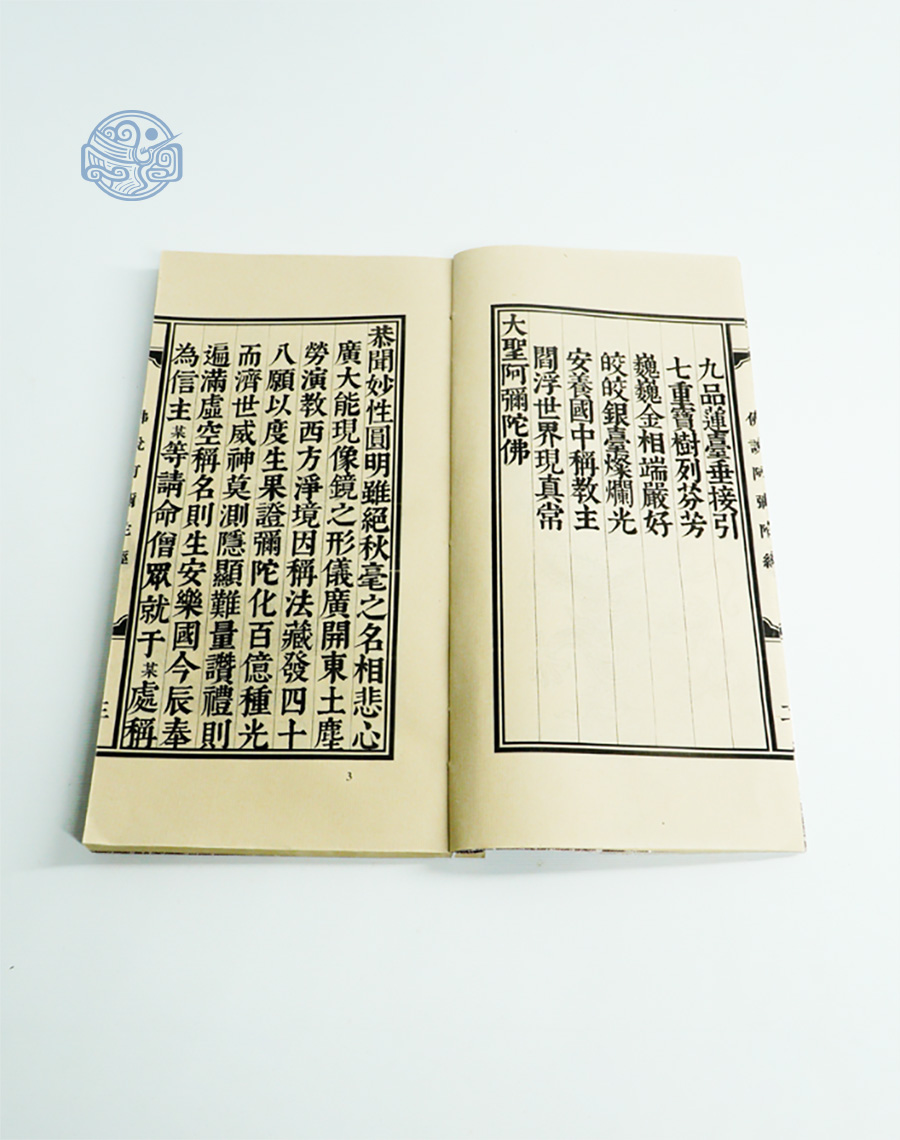 九品蓮臺垂接引
七重寶樹列芬芳
巍巍金相端嚴好
皎皎銀臺燦爛光
安養國中稱教主
閻浮世界現真常
大聖阿彌陀佛
佛說阿彌陀經
二
恭聞妙性圓明雖絕秋毫之名相悲心
廣大能現像鏡之形儀廣開東土塵
勞演教西方淨境因稱法藏發四十
八願以度生果證彌陀化百億種光
而濟世威神莫測隱顯難量讚禮則
遍滿虛空稱名則生安樂國今辰奉
為信主某等請命僧眾就于某處稱
佛說阿彌陀經
三
3